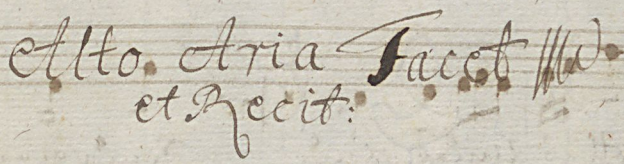 Alto. Aria Tacet
et Recit: